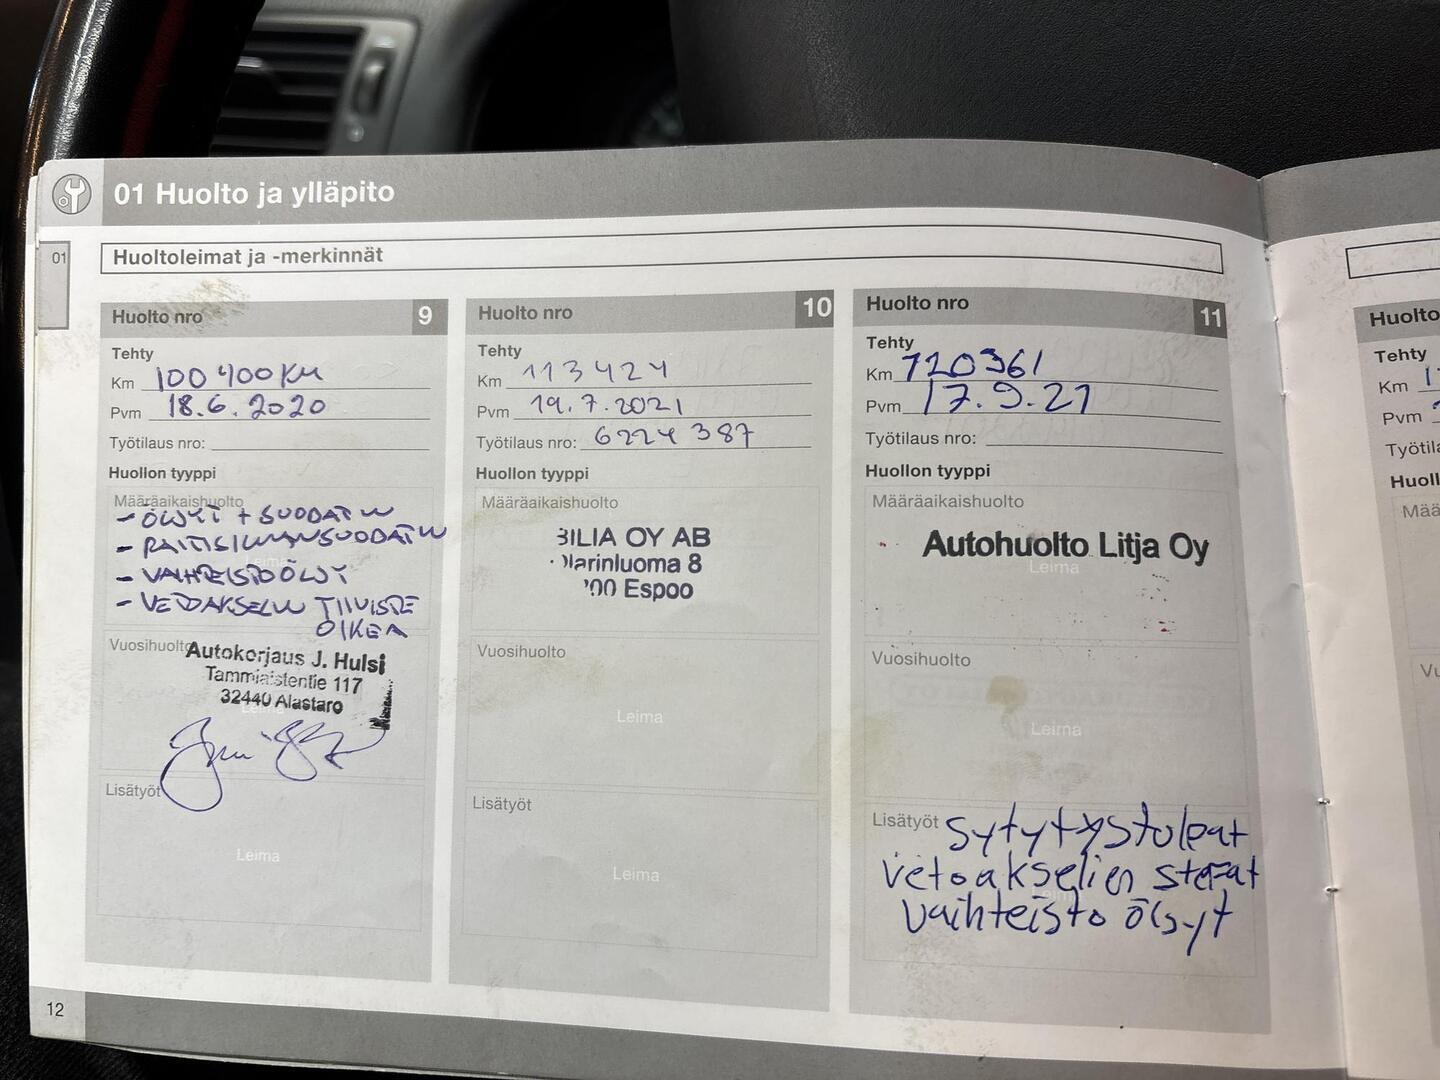 01 Huolto ja ylläpito
01
Huoltoleimat ja -merkinnät
Huolto nro 9
Tehty
Km 100 400 KM
Pvm 18.6.2020
Työtilaus nro:
Huollon tyyppi
Määräaikaishuolto
- ÖLJYT + SUODATIN
- RAITISILMANSUODATIN
- VAIHTEISTOÖLJY
- VETOAKSELIN TIIVISTE
OIKEA
Leima
Vuosihuolto
Autokorjaus J. Hulsi
Tammiaistentie 117
32440 Alastaro
Leima
Lisätyöt
Leima
Huolto nro 10
Tehty
Km 113424
Pvm 19.7.2021
Työtilaus nro: 6224387
Huollon tyyppi
Määräaikaishuolto
BILIA OY AB
larinluoma 8
00 Espoo
Vuosihuolto
Leima
Lisätyöt
Leima
Huolto nro 11
Tehty
Km 120361
Pvm 17.9.21
Työtilaus nro:
Huollon tyyppi
Määräaikaishuolto
Autohuolto Litja Oy
Leima
Vuosihuolto
Leima
Lisätyöt Sytytystulpat
vetoakselien stefat
vaihteisto öljyt
12
Huolto
Tehty
Km
Pvm